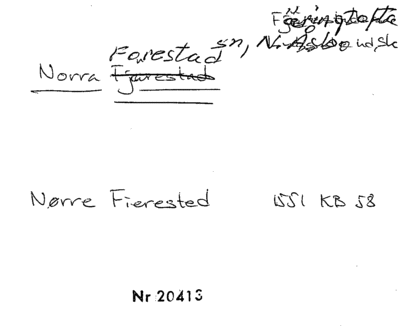 Färingtofta
Farestad sn, N. Åsbo hd, sk
Norra Fjarestad
Nørre Fierested 1551 KB 58
Nr 20413